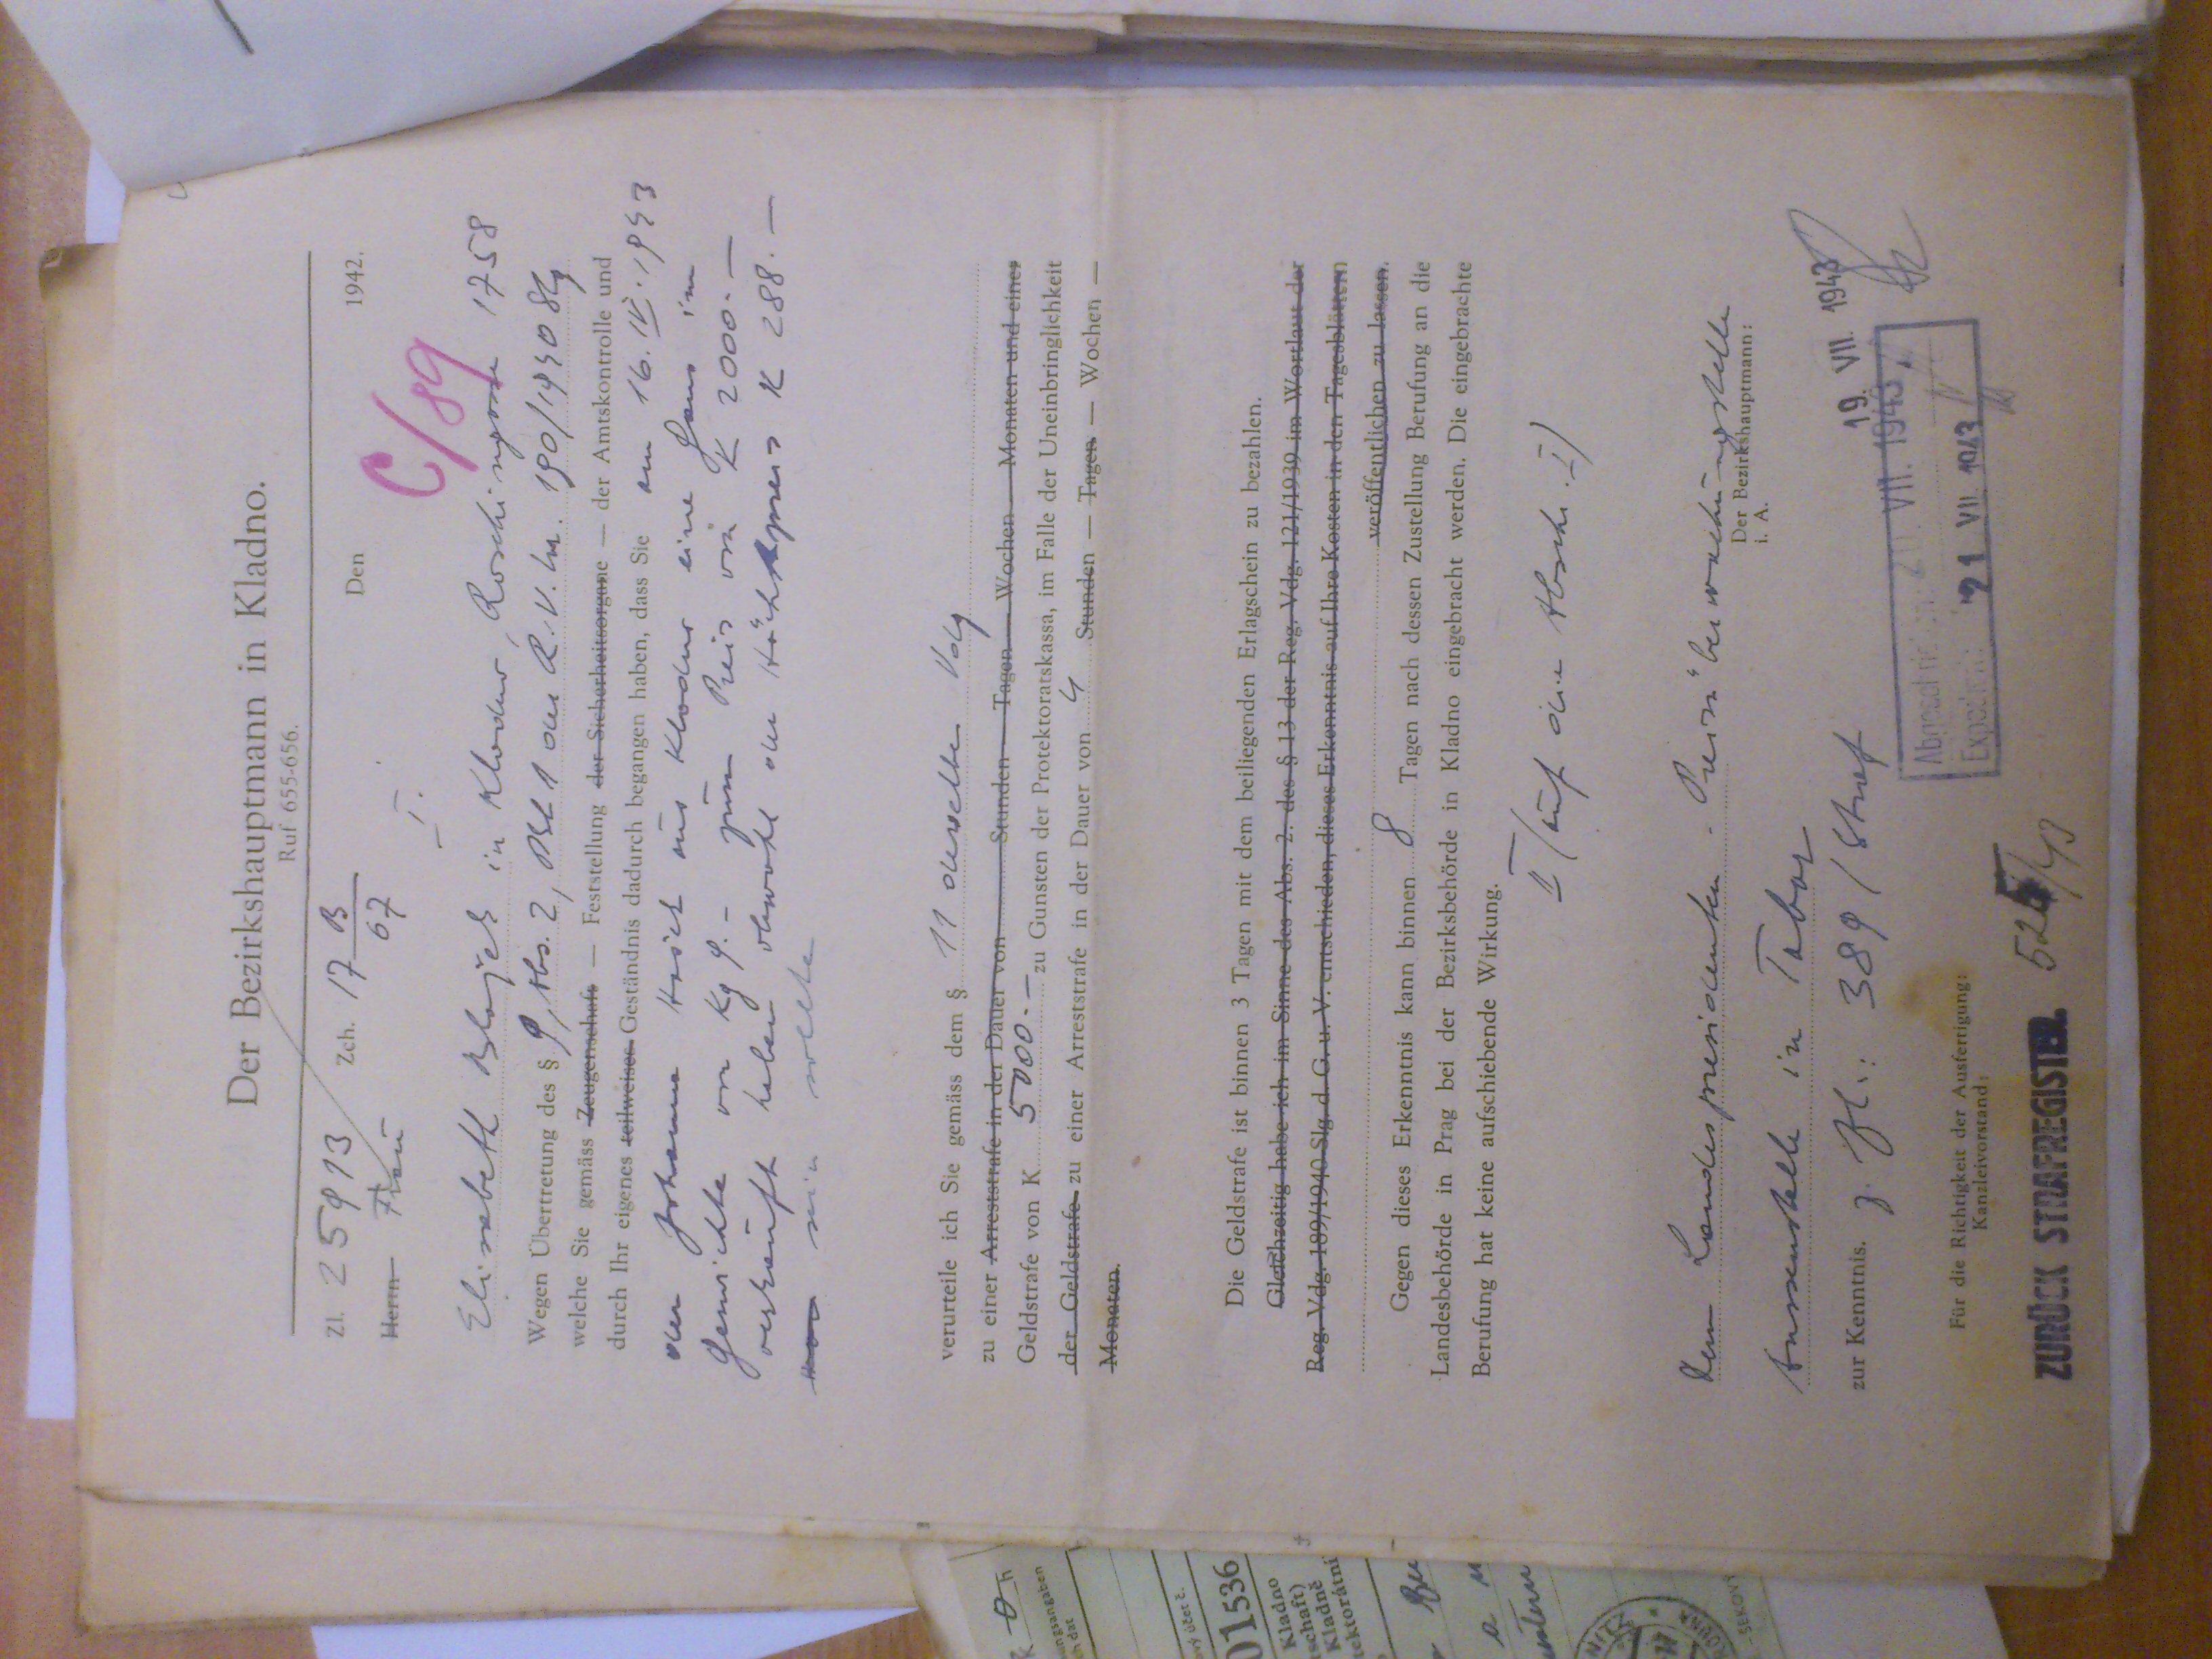 Der Bezirkshauptmann in Kladno.
Ruf 655-656.
Zl. 25913 Zch. 17 B/67 Den 1942.
Herrn Frau
I.
C/89
Elisabeth in Kladno, 1758
Wegen Übertretung des § 9, Abs. 2, 1 der R.V. Nr. 190/1940 Slg
welche Sie gemäss Zeugenschaft — Feststellung der Sicherheitsorgane — der Amtskontrolle und
durch Ihr eigenes teilweises Geständnis dadurch begangen haben, dass Sie am 16. IV. 1943
der Johanna aus Kladno eine Gans im
Gewichte von Kg 9.- zum Preis von K 2000.—
verkauft haben obwohl der Höchstpreis K 288.—
war sein sollte
verurteile ich Sie gemäss dem § 11 derselben Vdg
zu einer Arreststrafe in der Dauer von Stunden — Tagen — Wochen — Monaten und einer
Geldstrafe von K 5000.— zu Gunsten der Protektoratskassa, im Falle der Uneinbringlichkeit
der Geldstrafe zu einer Arreststrafe in der Dauer von 4 Stunden — Tagen — Wochen —
Monaten.
Die Geldstrafe ist binnen 3 Tagen mit dem beiliegenden Erlagschein zu bezahlen.
Gleichzeitig habe ich im Sinne des Abs. 2. des § 13 der Reg. Vdg. 121/1939 im Wortlaut der
Reg. Vdg. 189/1940 Slg. d. G. u. V. entschieden, dieses Erkenntnis auf Ihre Kosten in den Tagesblättern
veröffentlichen zu lassen.
Gegen dieses Erkenntnis kann binnen 8 Tagen nach dessen Zustellung Berufung an die
Landesbehörde in Prag bei der Bezirksbehörde in Kladno eingebracht werden. Die eingebrachte
Berufung hat keine aufschiebende Wirkung.
II (auf die Abschr. I)
Dem Landespresidenten - Preisüberwachungstelle
Der Bezirkshauptmann:
i. A.
Aussenstelle in Tabor
zur Kenntnis. z. Zl.: 389 / Straf
19. VII. 1943
Abgeschrieben: 20. VII. 1943
Expediert: 21 VII. 1943
Für die Richtigkeit der Ausfertigung:
Kanzleivorstand:
ZURÜCK STRAFREGISTER. /43
K 0 h
ungsangaben
h dat
ový účet č.
01536
Kladno
tschaft)
Kladně
tektorátní